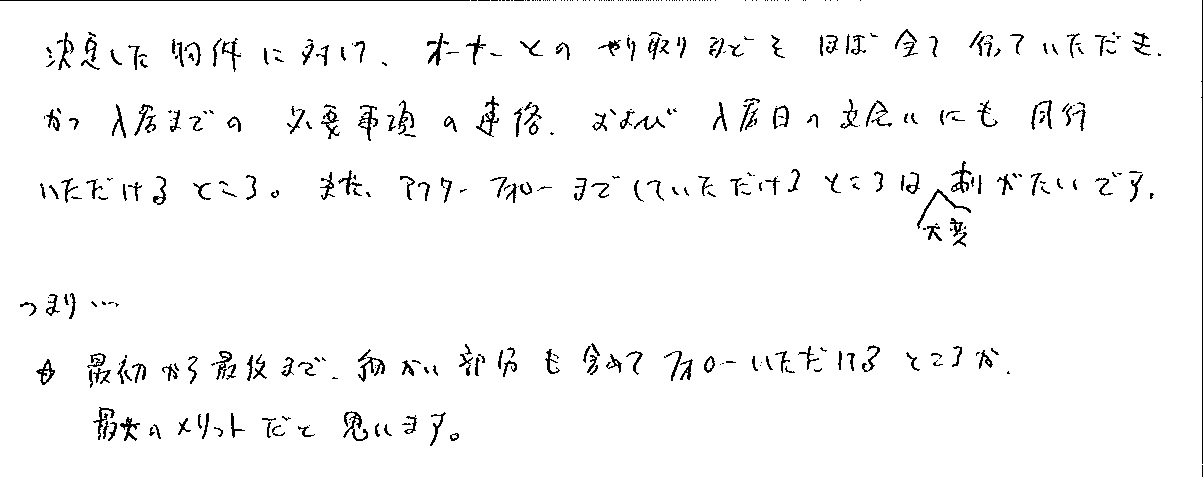 決定した物件に対して、オーナーとのやり取りなどをほぼ全て行っていただき、
かつ入居までの必要事項の連絡、および入居日の立会いにも同行
いただけるところ。また、アフターフォローまでしていただけるところは大変有りがたいです。
つまり…
☆ 最初から最後まで、細かい部分も含めてフォローいただけるところが、
最大のメリットだと思います。